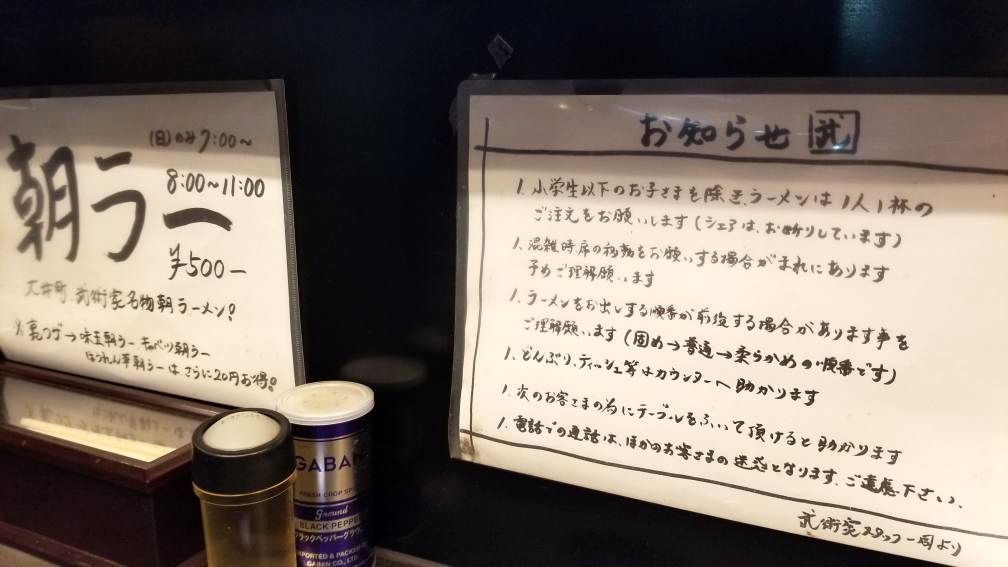 (日)のみ7:00～
朝ラー
8:00～11:00
¥500-
大井町 武術家名物朝ラーメン!
裏つげ→味玉朝ラー キャベツ朝ラー
ほうれん草朝ラーはさらに20円お得!
お知らせ 武
1. 小学生以下のお子さまを除き、ラーメンは1人1杯の
ご注文をお願いします(シェアは、お断りしています)
1. 混雑時席の移動をお願いする場合がまれにあります
予めご理解願います
1. ラーメンをお出しする順番が前後する場合があります事を
ご理解願います(固め→普通→柔らかめの順番です)
1. どんぶり、ティッシュ等はカウンターへ助かります
1. 次のお客さまの為にテーブルをふいて頂けると助かります
1. 電話での通話は、ほかのお客さまの迷惑となります、ご遠慮下さい。
武術家スタッフ一同より
GABAN
FRESH CROP SPICE
Ground
BLACK PEPPER
ブラックペッパーグラウンド
IMPORTED & PACKED
GABAN CO., LTD.